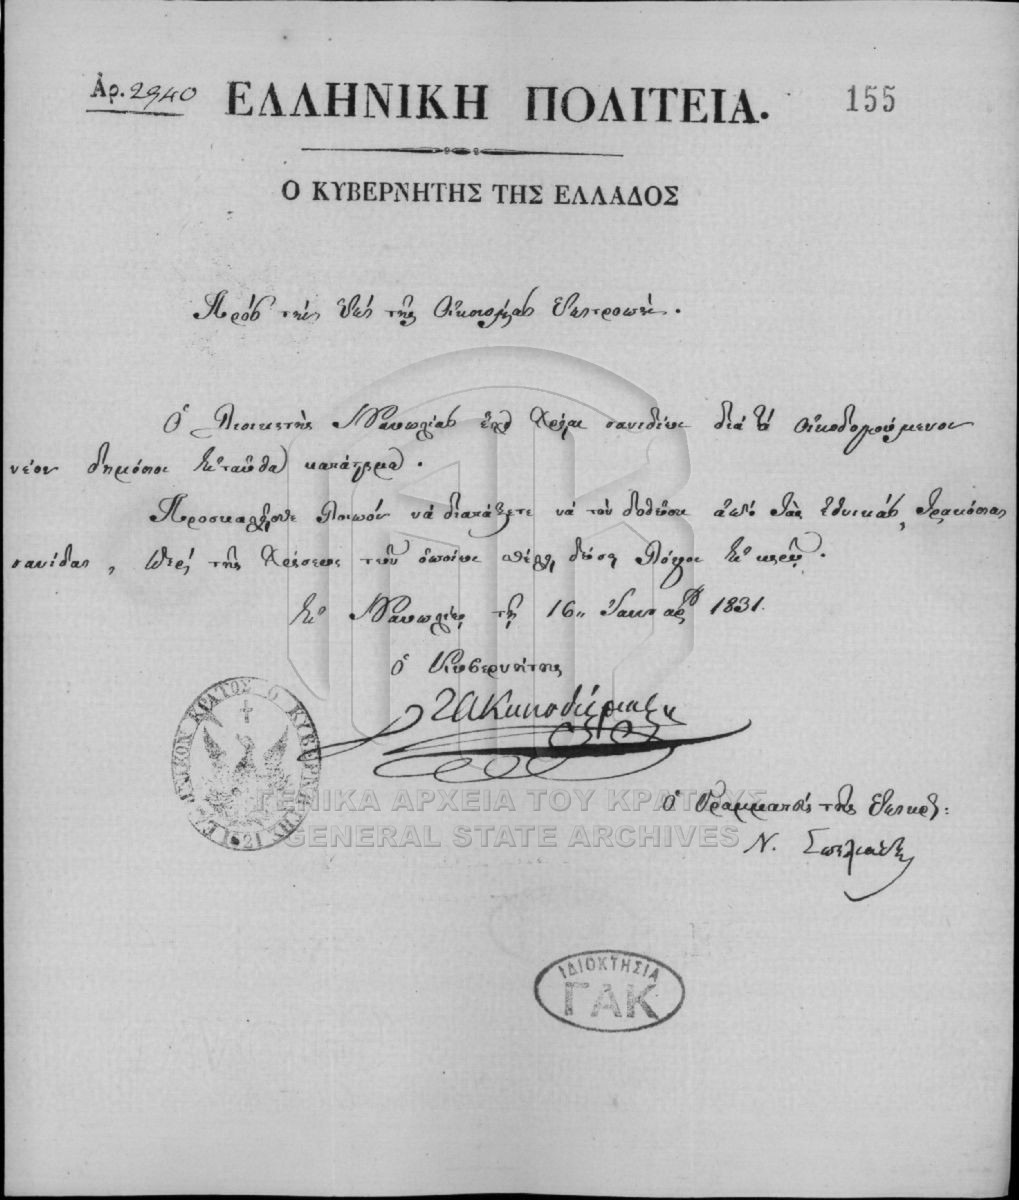 Ἀρ. 2940 ΕΛΛΗΝΙΚΗ ΠΟΛΙΤΕΙΑ. 155
Ο ΚΥΒΕΡΝΗΤΗΣ ΤΗΣ ΕΛΛΑΔΟΣ
Πρὸς τὴν ἐπὶ τῆς Οἰκονομίας Ἐπιτροπήν.
Ὁ Διοικητὴς Ναυπλίας ἔχει χρείαν σανιδίων διὰ τὸ οἰκοδομούμενον
νέον δημόσιον ἐνταῦθα κατάστημα.
Προσκαλεῖσθε λοιπὸν νὰ διατάξετε νὰ τοῦ δοθῶσιν ἀπὸ τὰς ἐθνικὰς, τριακόσιαι
σανίδαι, περὶ τῆς χρήσεως τῶν ὁποίων θέλει δώσει λόγον ἐν καιρῷ.
Ἐν Ναυπλίῳ τῇ 16 Ἰανουαρ 1831.
ὁ Κυβερνήτης
ΙΑ Καποδίστριας
ΕΛΛΗΝΙΚΟΝ ΚΡΑΤΟΣ Ο ΚΥΒΕΡΝΗΤΗΣ 1821
ΓΕΝΙΚΑ ΑΡΧΕΙΑ ΤΟΥ ΚΡΑΤΟΥΣ
GENERAL STATE ARCHIVES
ὁ Γραμματεὺς τῆς Ἐπικρ:
Ν. Σπηλιάδης
ΙΔΙΟΚΤΗΣΙΑ
ΓΑΚ